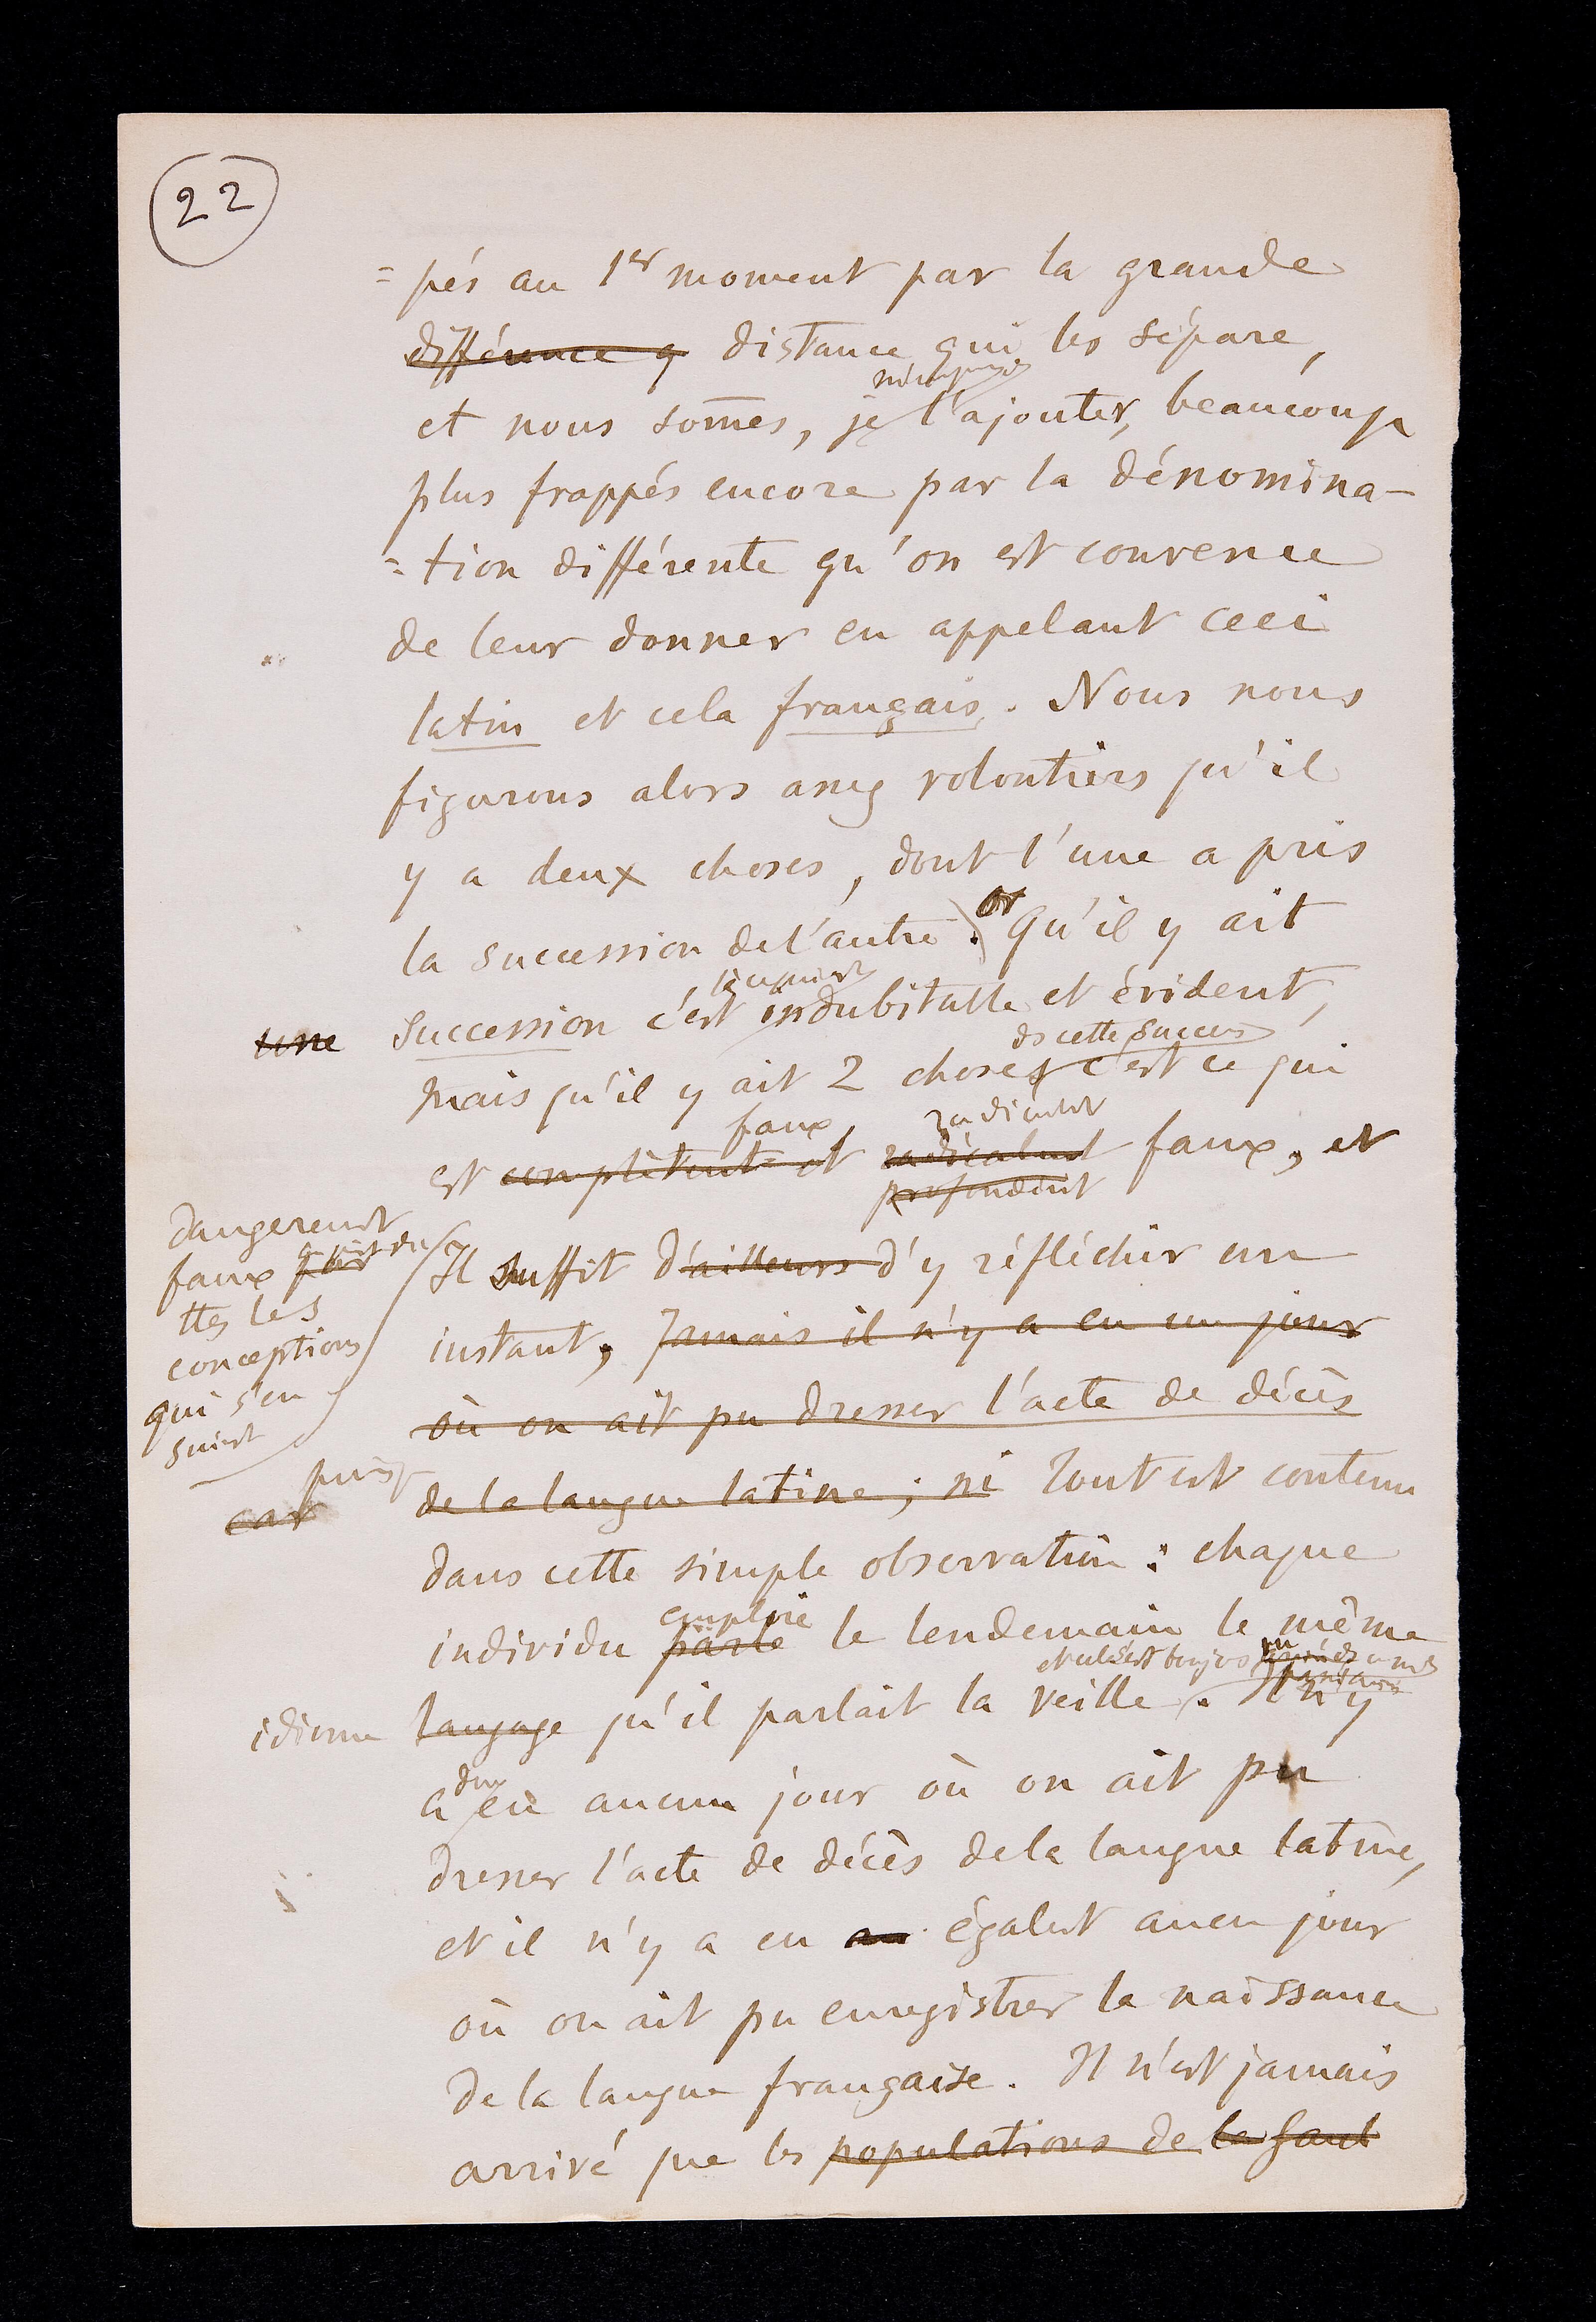 22
= pés au 1er moment par la grande
différence q distance qui les sépare,
et nous som̄es, je l'ajouter, beaucoup
plus frappés encore par la dénomina-
= tion différente qu'on est convenu
de leur donner en appelant ceci
latin et cela français. Nous nous
figurons alors assez volontiers qu'il
y a deux choses, dont l'une a pris
la succession de l'autre. Or Qu'il y ait
une succession c'est indubitable et évident,
ds cette success
mais qu'il y ait 2 choses c'est ce qui
faux, radicalmt
est complètemt et radicalmt faux, et
profondémt
dangereusmt
faux
ttes les
conceptions
qui s'en
suivt
Il suffit d'ailleurs d'y réfléchir un
instant, Jamais il n'y a eu un jour
où on ait pu dresser l'acte de décès
puisq
car de la langue latine ; ni Tout est contenu
dans cette simple observation : chaque
emploie
individu parle le lendemain le même
et cela s'est toujours
idiome langage qu'il parlait la veille. Il n'y
donc
a eu aucun jour où on ait pu
dresser l'acte de décès de la langue latine,
et il n'y a eu au égalemt aucun jour
où on ait pu enregistrer la naissance
de la langue française. Il n'est jamais
arrivé que les populations de la Gaul